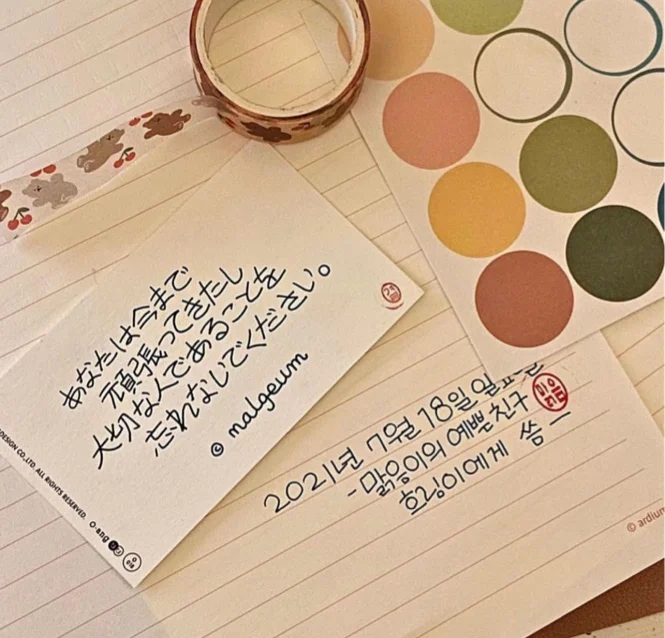 あなたは今まで
頑張ってきたし
大切な人であることを
忘れなしでください。
© malgeum
DESIGN CO.,LTD. ALL RIGHTS RESERVED.
2021년 7월 18일 일요일
-맑응이의 예쁜 친구
흐링이에게 씀 -
© ardium